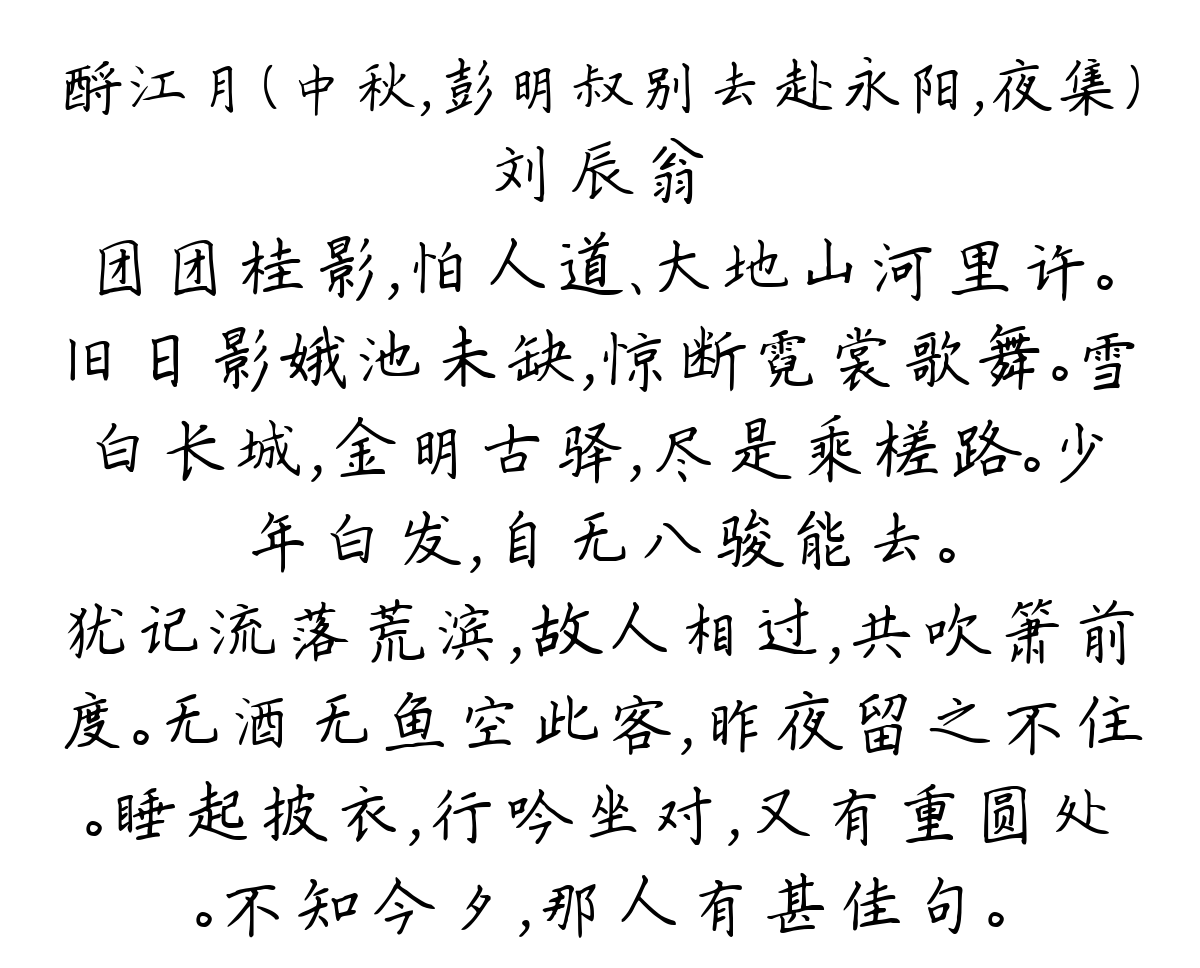 酹江月(中秋,彭明叔别去赴永阳,夜集)
刘辰翁
团团桂影,怕人道、大地山河里许。
旧日影娥池未缺,惊断霓裳歌舞。雪
白长城,金明古驿,尽是乘槎路。少
年白发,自无八骏能去。
犹记流落荒滨,故人相过,共吹箫前
度。无酒无鱼空此客,昨夜留之不住
。睡起披衣,行吟坐对,又有重圆处
。不知今夕,那人有甚佳句。